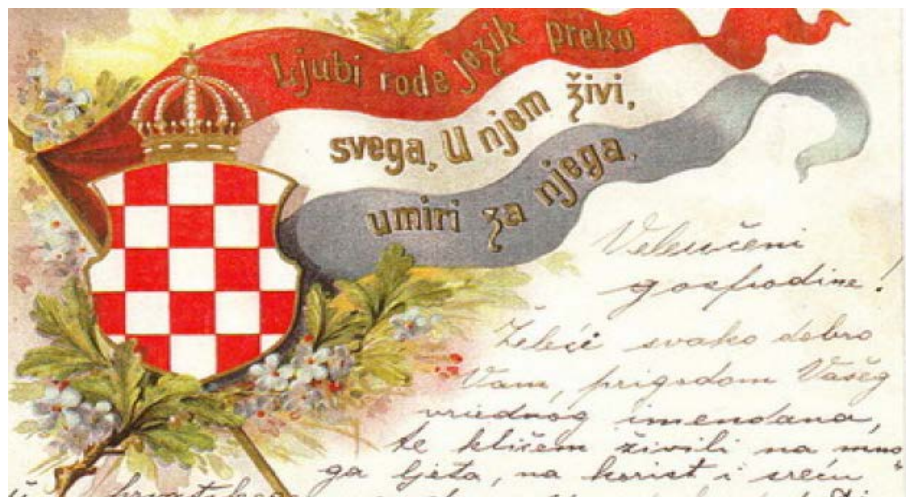 Ljubi rode jezik preko
svega, U njem živi,
umiri za njega.
Veleučeni
gospodine!
Želeći svako dobro
Vam, prigodom Vašeg
vriednog imendana,
te kličem živili na mno-
ga ljeta, na korist i sreću
hrvatskoga